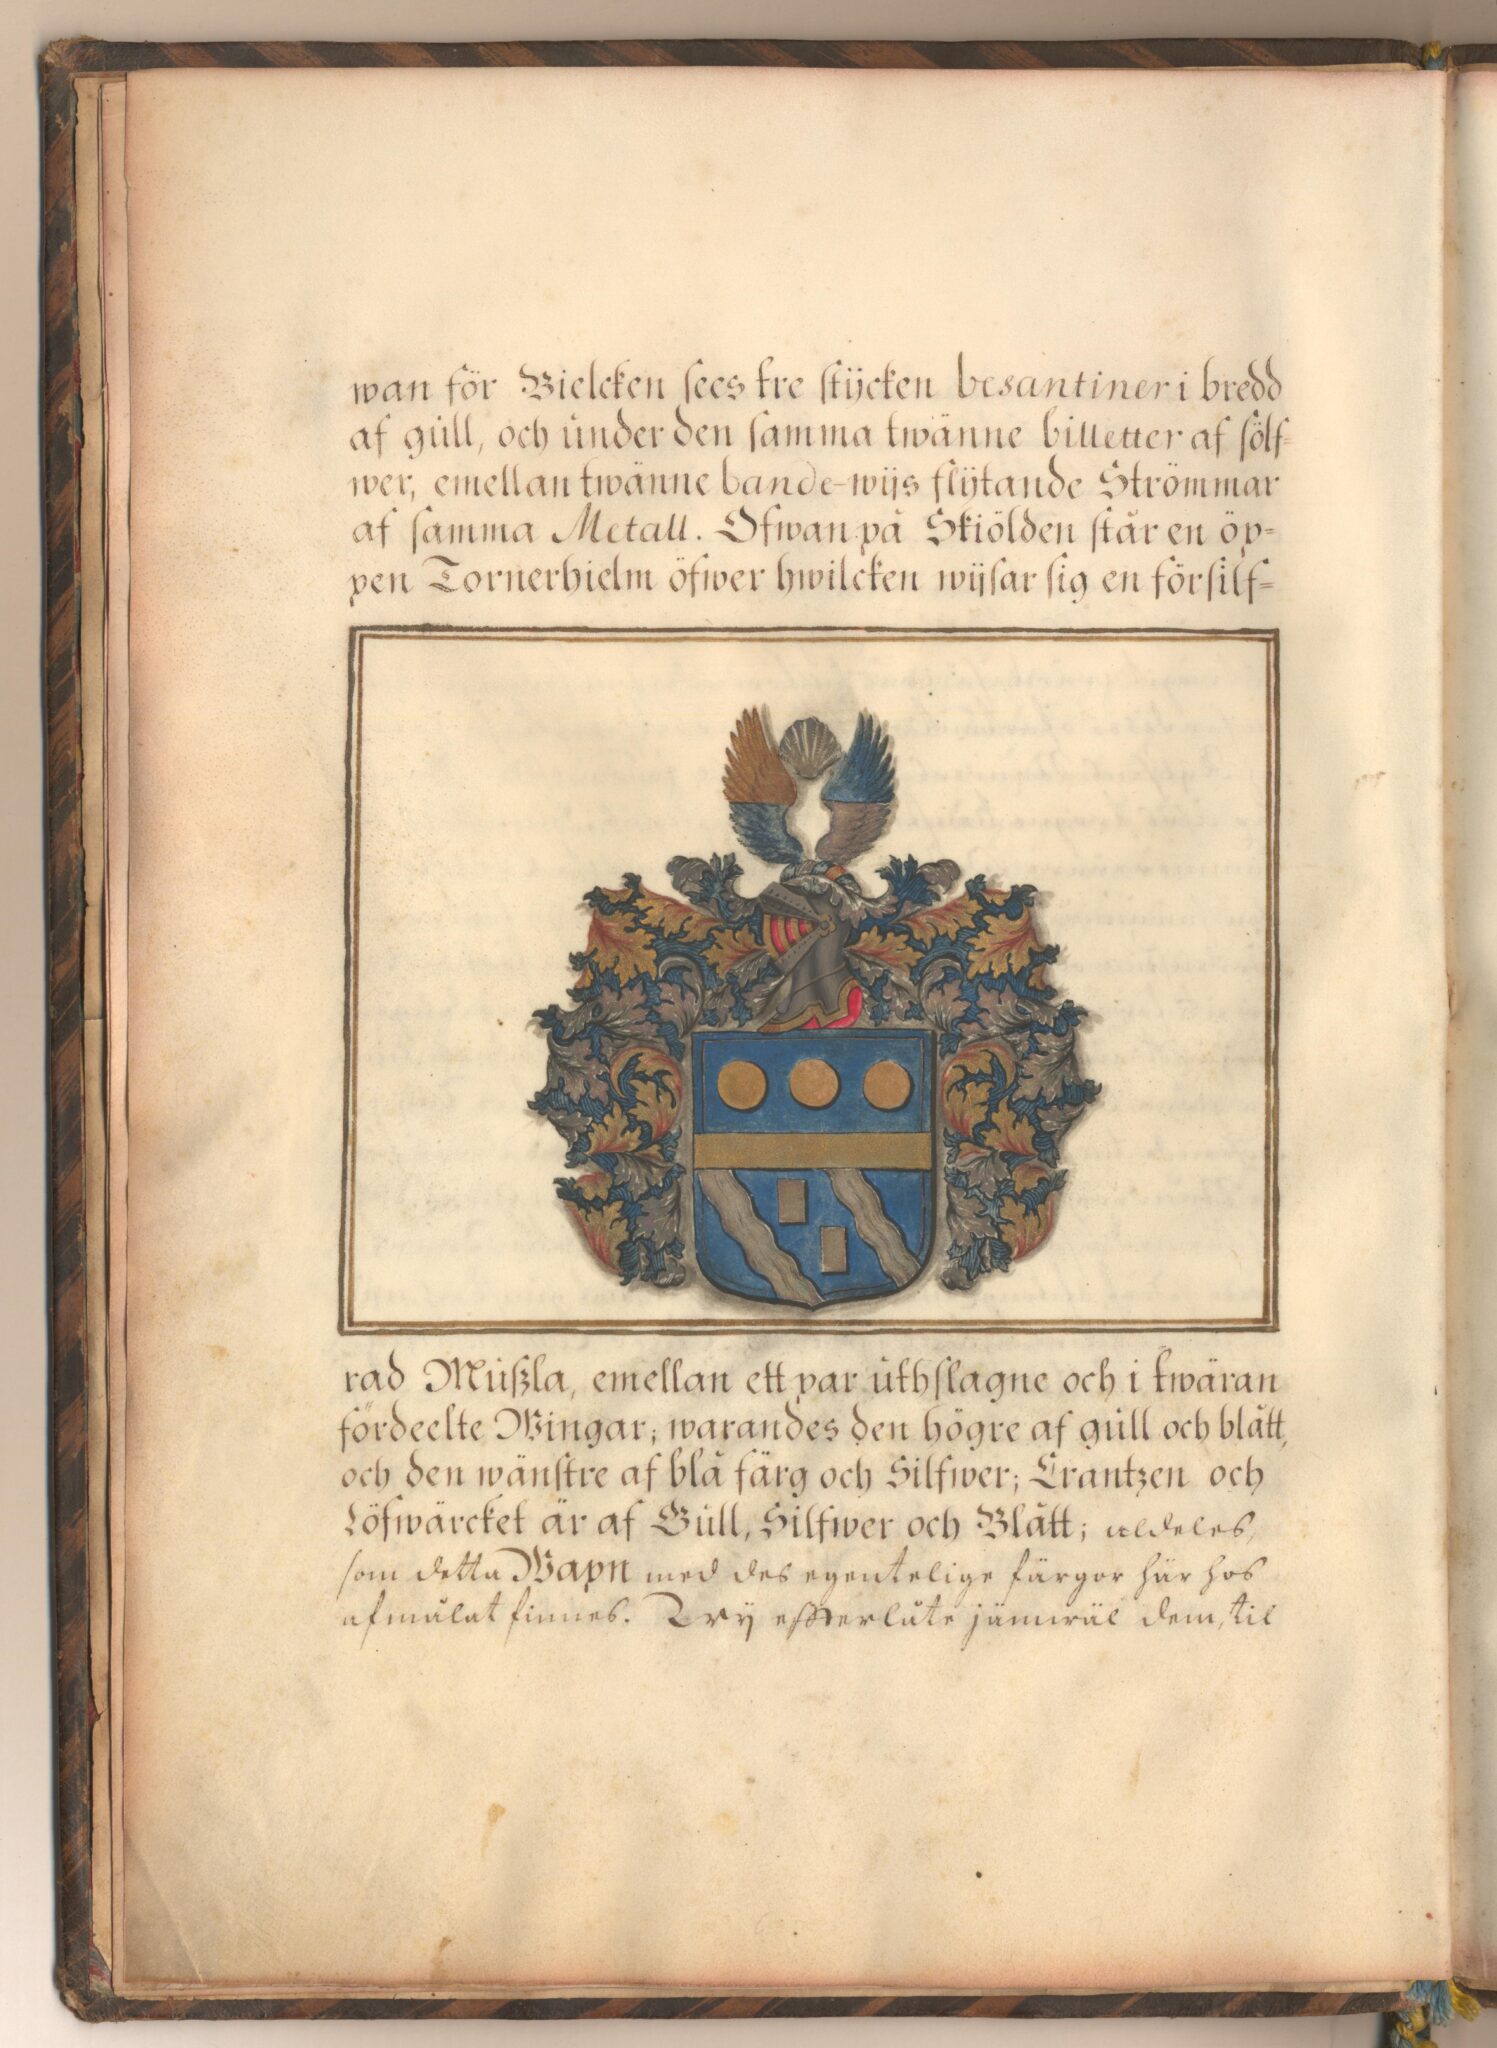 wan för Bielcken sees tre stÿcken besantiner i bredd
af gull, och under den samma twänne billetter af sölf-
wer, emellan twänne bande-wijs flÿtande Strömmar
af samma Metall. Ofwan på Skiölden står en öp-
pen Tornerhielm öfwer hwilcken wijsar sig en försilf-
rad Mußla, emellan ett par uthslagne och i twäran
fördeelte Wingar; warandes den högre af gull och blått,
och den wänstre af blå färg och Silfwer; Crantzen och
Löfwärcket är af Gull, Silfwer och Blått; aldeles,
som detta Wapn med des egentelige färgor här hos
afmålat finnes. Wÿ efterlåte jämwäl dem, til